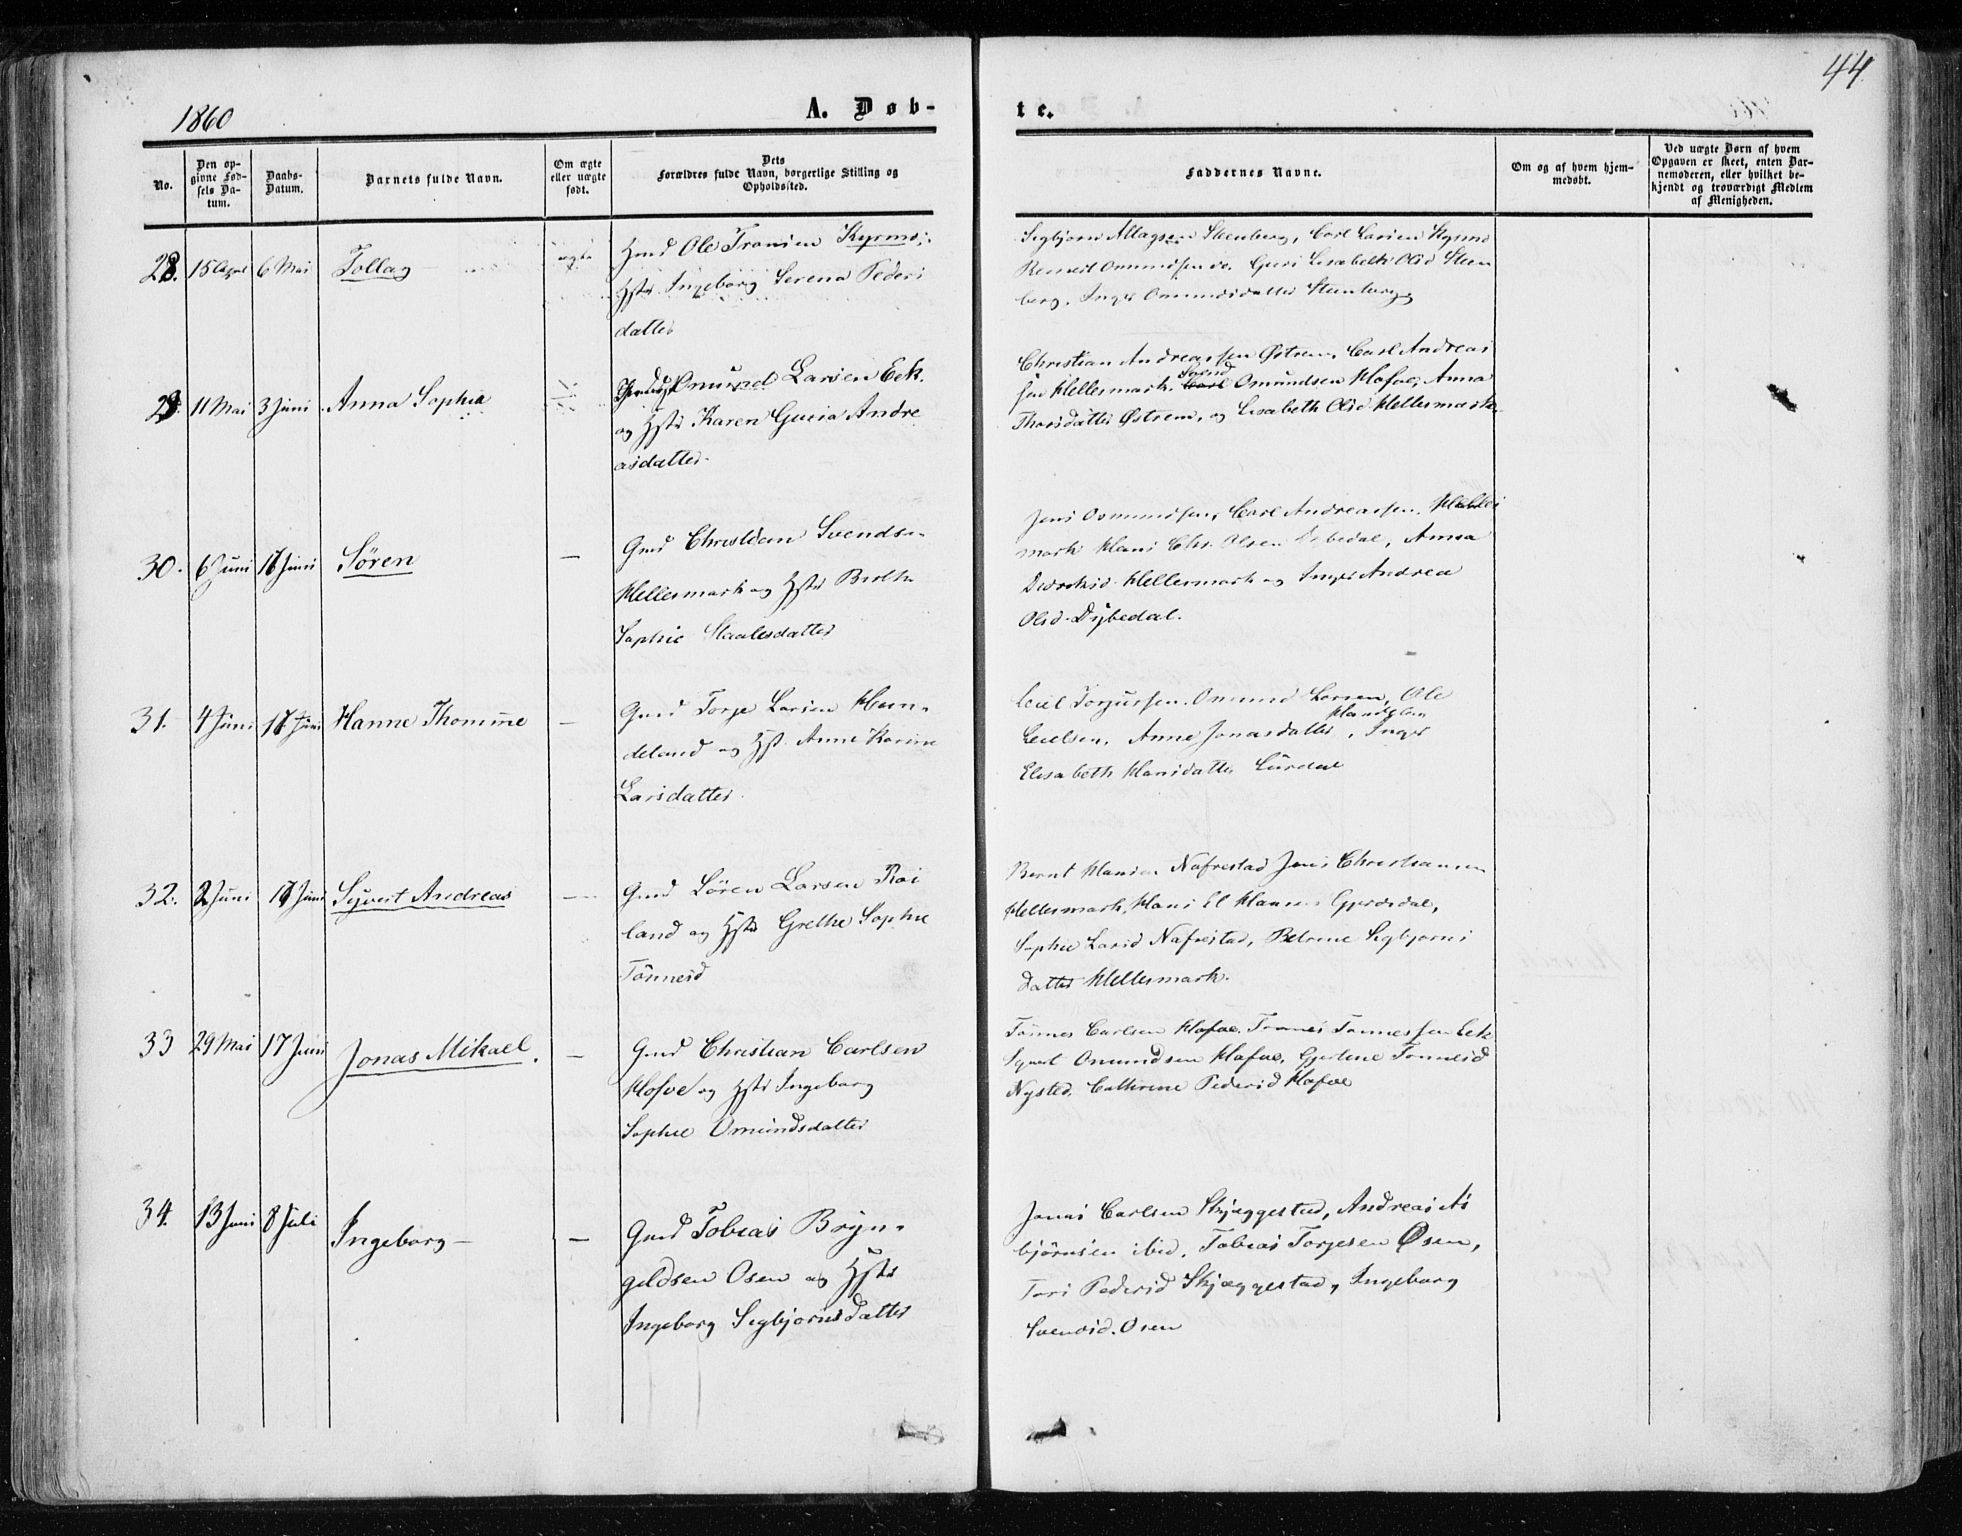 44.
1860
A. Døb-
te.
No.
Den op-
givne Fød-
sels Da-
tum.
Daabs-
Datum.
Barnets fulde Navn.
Om ægte
eller uægte
født.
Dets
Forældres fulde Navn, borgerlige Stilling og
Opholdssted.
Faddernes Navne.
Om og af hvem hjem-
medøbt.
Ved uægte Børn af hvem
Opgaven er skeet, enten Bar-
nemoderen, eller hvilket be-
kjendt og troværdigt Medlem
af Menigheden.
28. 15 April 6 Mai Tollag ægte
Gmd Ole Tronsen Kyrmo;
Hstr Ingeborg Serena Peders
datter
Segbjørn Allagsen Steenberg, Carl Larsen Kyrmo
Omundsen do. Guri Lisabeth Olsd Steen
berg. Inger Omundsdatter Steenberg
29. 11 Mai 3 Juni Anna Sophia
Omund Larsen Eek.
og Hstr Karen Guria Andre
asdatter.
Christian Andreassen Østrem, Carl Andreas
sen Hellesmark, Svend Omundsen Hofve, Anna
Thorsdatter Østrem, og Lisabeth Olsd Hellesmark.
30. 6 Juni 17 Juni Søren —
Gmd Christian Svendsen
Hellesmark og Hstr Berthe
Sophie Staalesdatter
Jens Omundsen, Carl Andreassen. Helles
mark Hans Chr. Olsen Dybedal, Anna
Hellesmark og Inger Andrea
Olsd. Dybedal.
31. 4 Juni 17 Juni Hanne Thomine —
Gmd Torje Larsen Hun-
deland og Hst. Anne Karine
Larsdatter.
Ceil Torjussen. Omund Larsen, Ole
Ceilsen, Anne Jonasdatter, Inger
Elisabeth Hansdatter Lürdal
32. 2 Juni 17 Juni Syvert Andreas —
Gmd Søren Larsen Roi
land og Hstr Grethe Sophie
Tønnesd
Bernt Hansen Nafrestad Jens Christiansen
Hellesmark, Hans El Hansen Gjerdsdal,
Sophie Larsd Nafrestad, Petrine Segbjørns
datter Hellesmark.
33 29 Mai 17 Juni Jonas Mikael. —
Gmd Christian Carlsen
Hofve og Hstr Ingeborg
Sophie Omundsdatter
Tønnes Carlsen Hofve. Trones Tønnessen Eek
Syvert Omundsen Hofve. Gjertine Tønnesd
Nysted. Cathrine Pedersd Hofve
34. 13 Juni 8 Juli Ingeborg — —
Gmd Tobias Bryn-
gildsen Osen og Hstr
Ingeborg Segbjørnsdatter
Jonas Carlsen Skjæggestad, Andreas As
bjørnsen ibid. Tobias Torjesen Osen,
Tori Pedersd Skjæggestad, Ingeborg
Svendsd. Osen